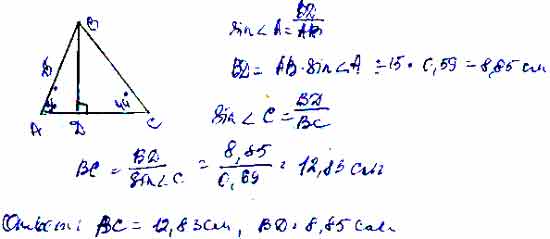 B
15
36°
44°
A
D
C
sin∠A = BD/AB
BD = AB·sin∠A = 15·0,59 = 8,85 см
sin∠C = BD/BC
BC = BD/sin∠C = 8,85/0,69 = 12,83 см
Ответ: BC = 12,83 см, BD = 8,85 см